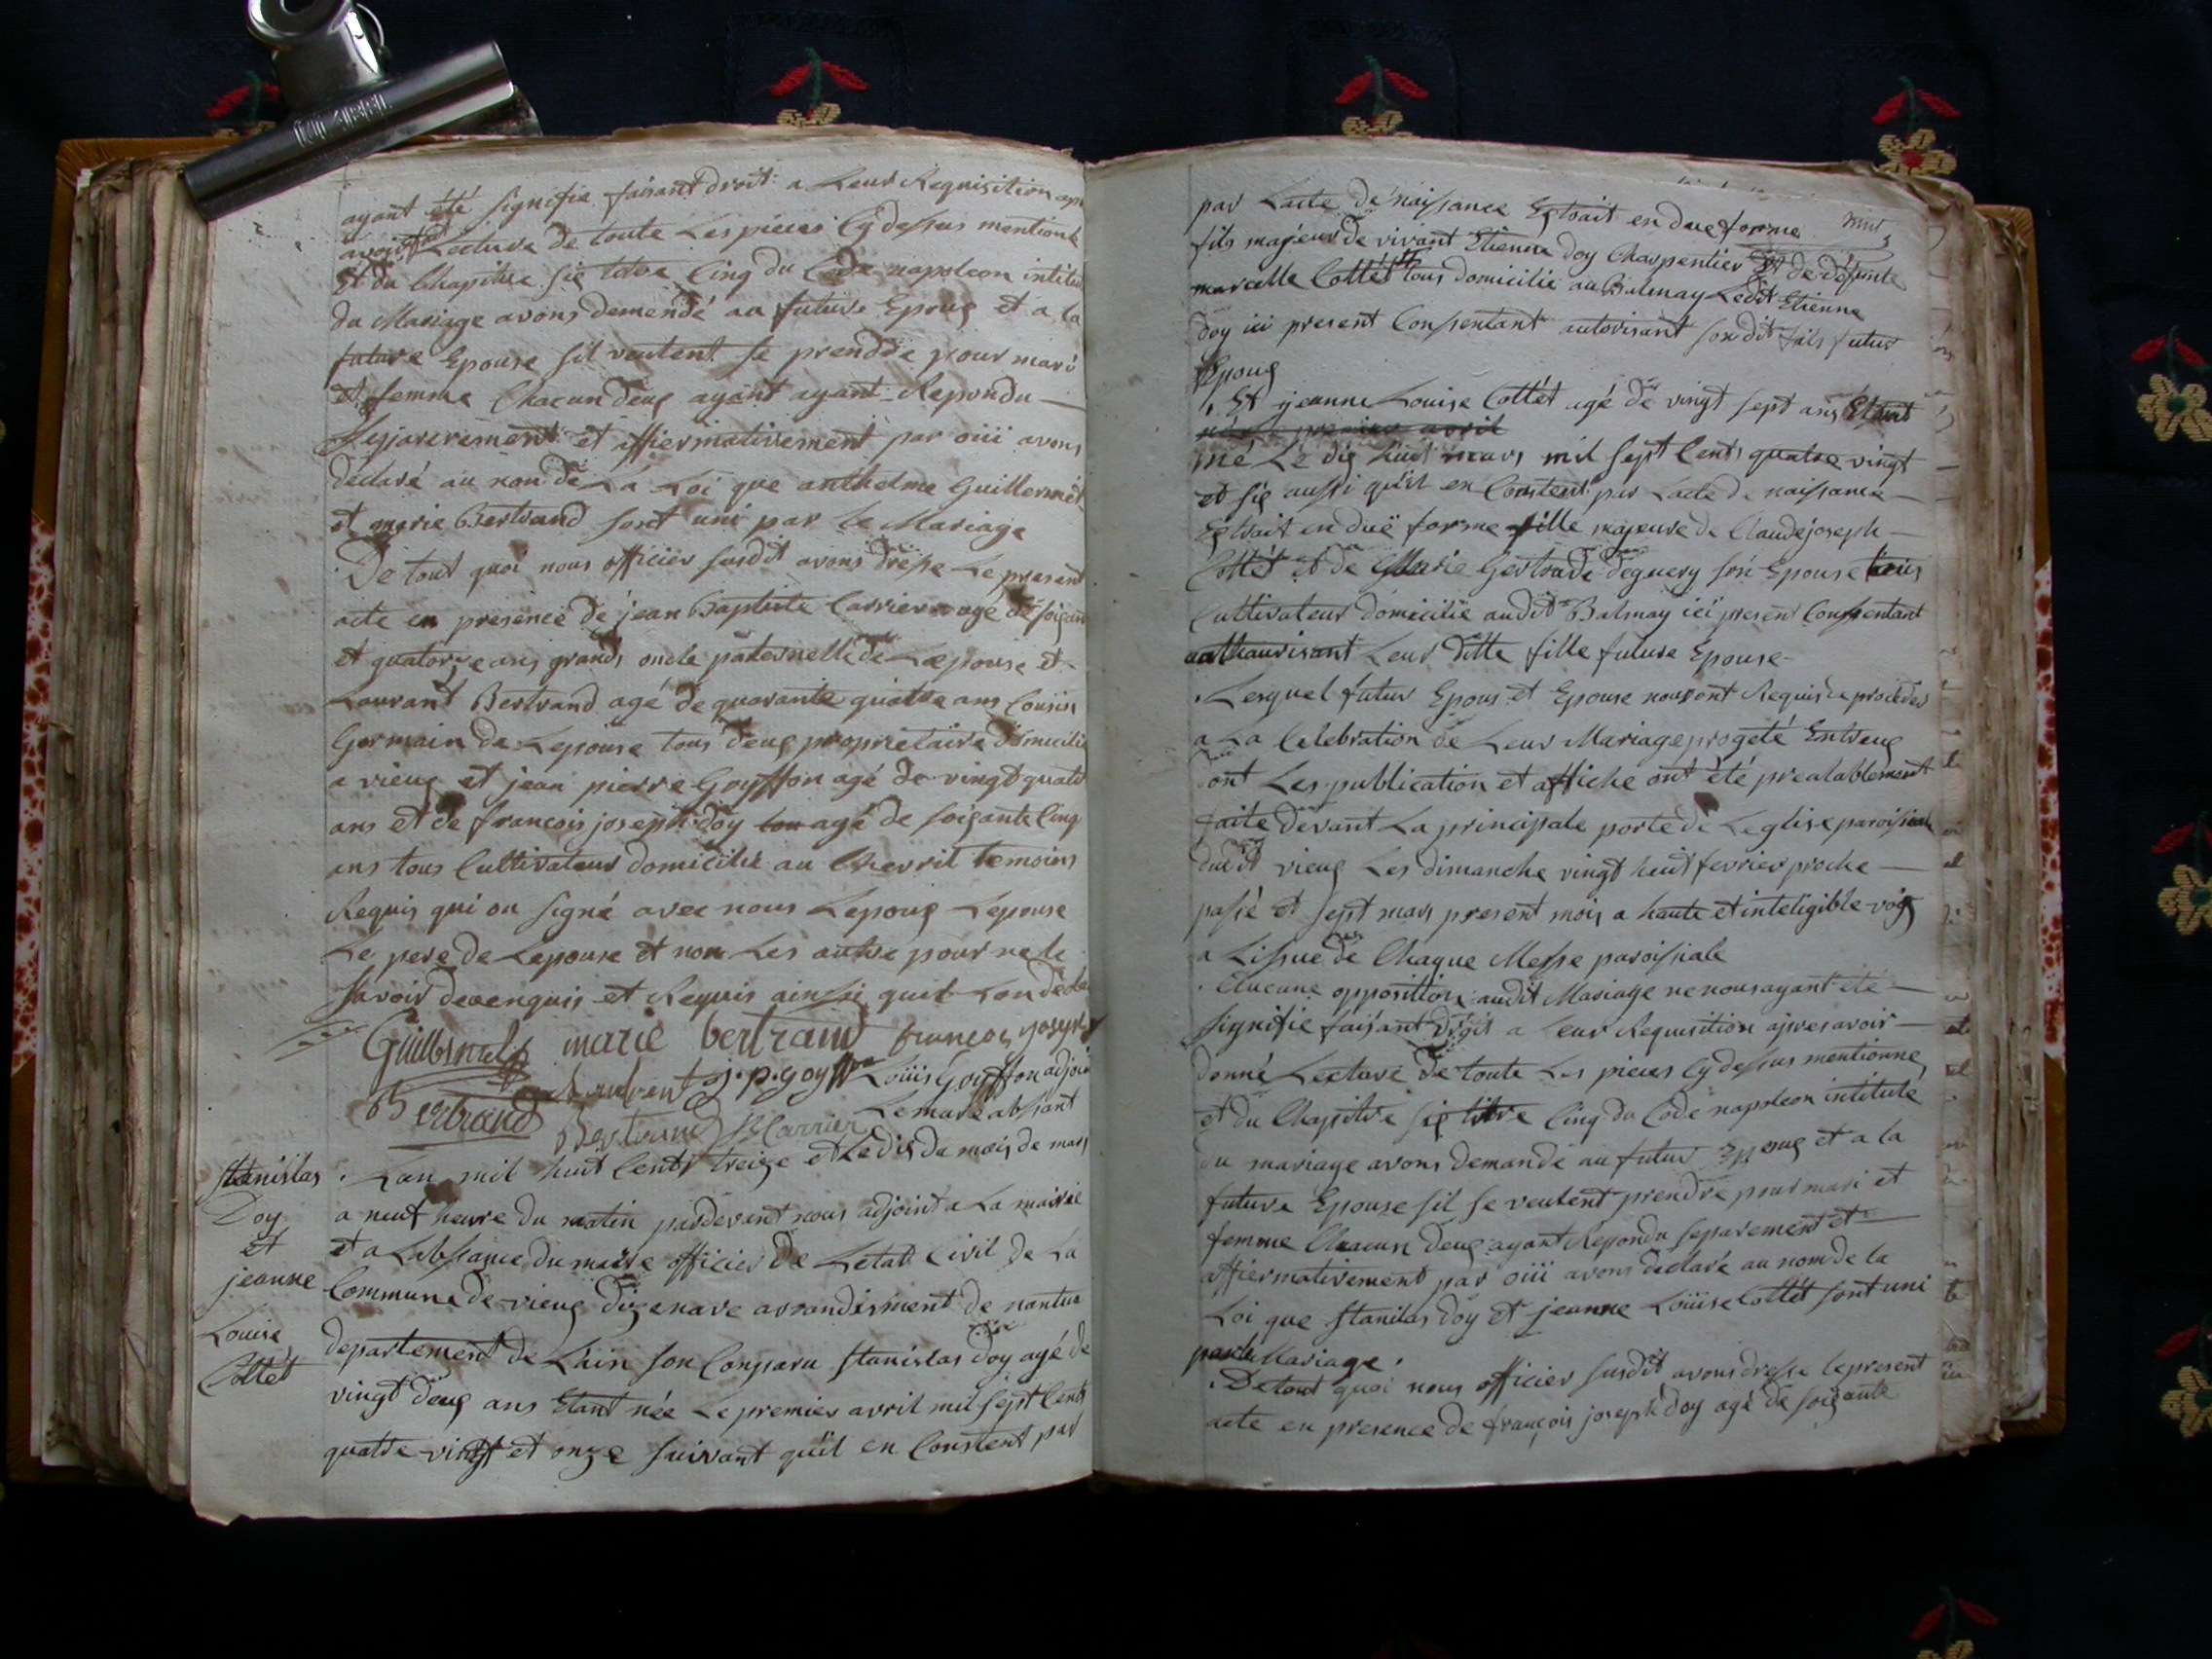 ayant été signifie faisant droit a Leur Requisition apr
avoir fait Lecture de toute Les pieces Cy dessus mentionè
Et du Chapitre six titre Cinq du Code napoleon intitu
du Mariage avons demendé au future Epoux et a la
future Epouse sil veutent se prendre pour mari
et femme Chacun deux ayant ayant Repondu
Separerement et affiermativement par oüi avons
declaré au nom de La Loi que anthelme Guillermet
et marie Bertrand sont uni par le Mariage
De tout quoi nous officier susdit avons dresse Le present
acte en presence de jean Baptiste Carrier age de soixan
et quatorze ans grands oncle paternelle de Lepouse et
Laurant Bertrand agé de quarante quatre ans Cousin
Germain de Lepouse tous deux proprietaire domicilie
a vieux et jean pierre Goyffon agé de vingt quatr
ans et de francois joseph doy agé de soixante Cinq
ans tous Cultivateur domicilié au Chevril temoins
Requis qui on signé avec nous Lepoux Lepouse
Le pere de Lepouse et non Les autre pour ne le
savoir de ce enquis et Requis ainsi quil Lon decla
marie bertrand francois joseph
j.p.goyffon Loüis Goyffon adjoin
Bertrand Bertrand Carrier Le maire absant
stanislas
Doy
et
jeanne
Louise
Collét
Lan mil huit Cents treize et Le dix du mois de mars
a neuf heure du matin pardevant nous adjoint a La mairie
et a Labsance du maire officier de Letat Civil de La
Commune de vieux dizenave arrondisment de nantua
departement de Lain son Comparu stanislas doy agé de
vingt deux ans Etant née Le premier avril mil sept Cents
quatre vingt et onze suivant qu'il en Constent par
par Lacte de naissance Extrait en due forme
fils majeur de vivant Etienne doy Charpentier Et de défunte
marcelle Collét tous domicilié au Balmay Ledit Etienne
doy ici present Consentant autorisant sondit fils futur
Epoux
Et jeanne Louise Collét agé de vingt sept ans Etant
née premier avril
mé Le dix huit mars mil sept Cents quatre vingt
et six aussi qu'il en Constent par Lacte de naissance
Extrait en duë forme fille majeure de Claude joseph
Collét et de Marie Gertrude deguery son Epouse tous
Cultivateur domicilie audit Balmay ici present Consentant
authaurisant Leur ditte fille future Epouse
Lesquel futur Epous et Epouse nous ont Requis de proceder
a La Celebration de Leur Mariage progété Entreux
dont Les publication et affiche ont été prealablement
faite devant La principale porte de Leglise paroissiale
dudit vieux Les dimanche vingt huit fevrier proche
passé et sept mars present mois a haute et inteligible voix
a Lissue de Chaque Messe paroissiale
Aucune opposition audit Mariage ne nous ayant été
signifie faisant droit a Leur Requisition apres avoir
donné Lecture de toute Les pieces Cy dessus mentionne
et du Chapitre six titre Cinq du Code napoleon intitulé
du mariage avons demandé au futur Epoux et a la
future Epouse sil se veutent prendre pour mari et
femme Chacun deux ayant Repondu separement et
affiermativement par oüi avons declaré au nom de la
Loi que stanilas doy et jeanne Loüise Collét sont uni
par le Mariage.
De tout quoi nous officier susdit avons dresse le present
acte en presence de françois joseph doy agé de soixante